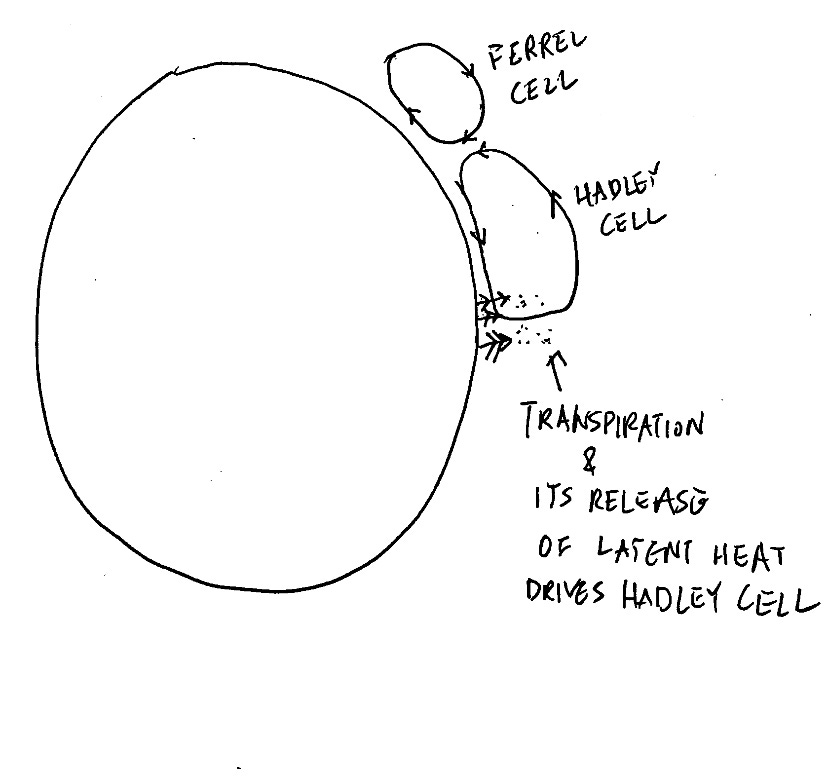 FERREL
CELL
HADLEY
CELL
TRANSPIRATION
&
ITS RELEASE
OF LATENT HEAT
DRIVES HADLEY CELL